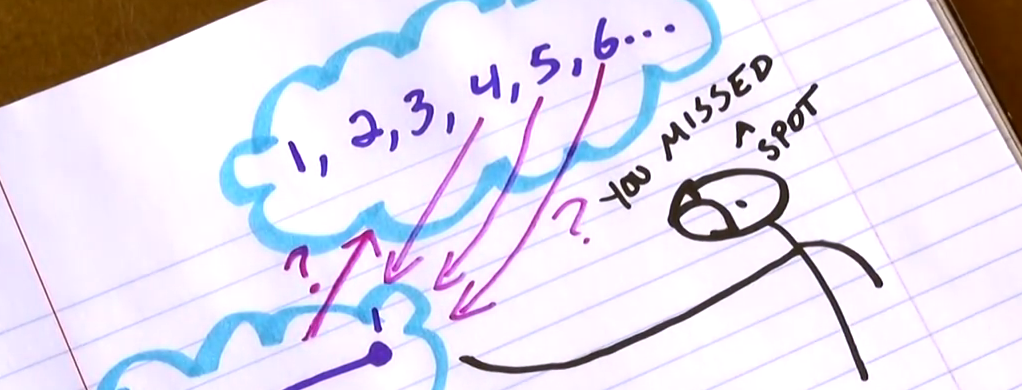 1, 2, 3, 4, 5, 6...
YOU MISSED
A
SPOT
?
?
1